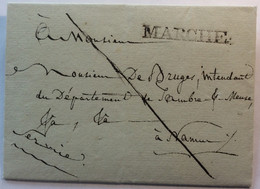 MARCHE.
A Monsieur
Monsieur De Bruges, intendant
du Département de Sambre & Meuse,
&a, &a
à Namur
Service